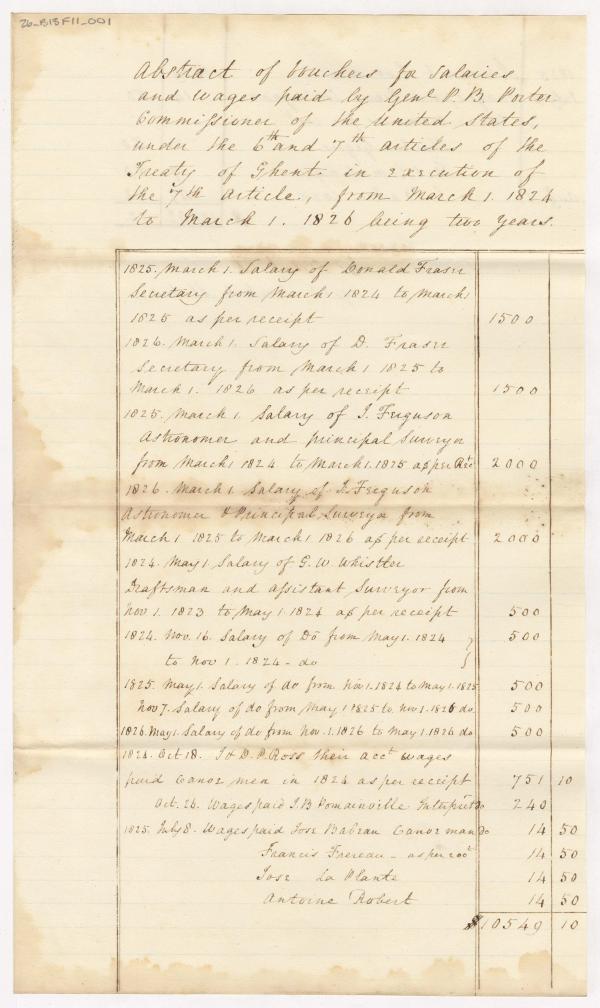 26-B15F11-001
Abstract of Vouchers for Salaries
and wages paid by Genl P. B. Porter
Commissioner of the United States,
under the 6th and 7th articles of the
Treaty of Ghent in execution of
the 7th article, from March 1. 1824
to March 1. 1826 being two Years.
1825. March 1. Salary of Donald Fraser
Secretary from March 1 1824 to March 1
1825 as per receipt 1500
1826. March 1. Salary of D. Fraser
Secretary from March 1 1825 to
March 1. 1826 as per receipt 1500
1825. March 1. Salary of J. Ferguson
Astronomer and principal Surveyor
from March 1 1824 to March 1. 1825 as per Rec 2000
1826. March 1. Salary of J. Ferguson
Astronomer & Principal Surveyor from
March 1 1825 to March 1 1826 as per receipt 2000
1824. May 1 Salary of G. W. Whistler
Draftsman and assistant Surveyor from
Nov 1. 1823 to May 1. 1824 as per receipt 500
1824. Nov. 16. Salary of Do from May 1. 1824 500
to Nov 1. 1824 - do
1825. May 1. Salary of do from Nov 1. 1824 to May 1. 1825 500
Nov 7. Salary of do from May 1 1825 to Nov 1. 1826 do 500
1826. May 1. Salary of do from Nov. 1. 1826 to May 1. 1826 do 500
1824. Oct 18. J & D. P. Ross their acct wages
paid Canoe men in 1824 as per receipt 751 10
Oct. 26. Wages paid J. B Pomainville Interpreter do 240
1825. July 8. Wages paid Jose Babeau Canoe man do 14 50
Francis Frereau - as per rect 14 50
Jose La Plante 14 50
Antoine Robert 14 50
$10549 10